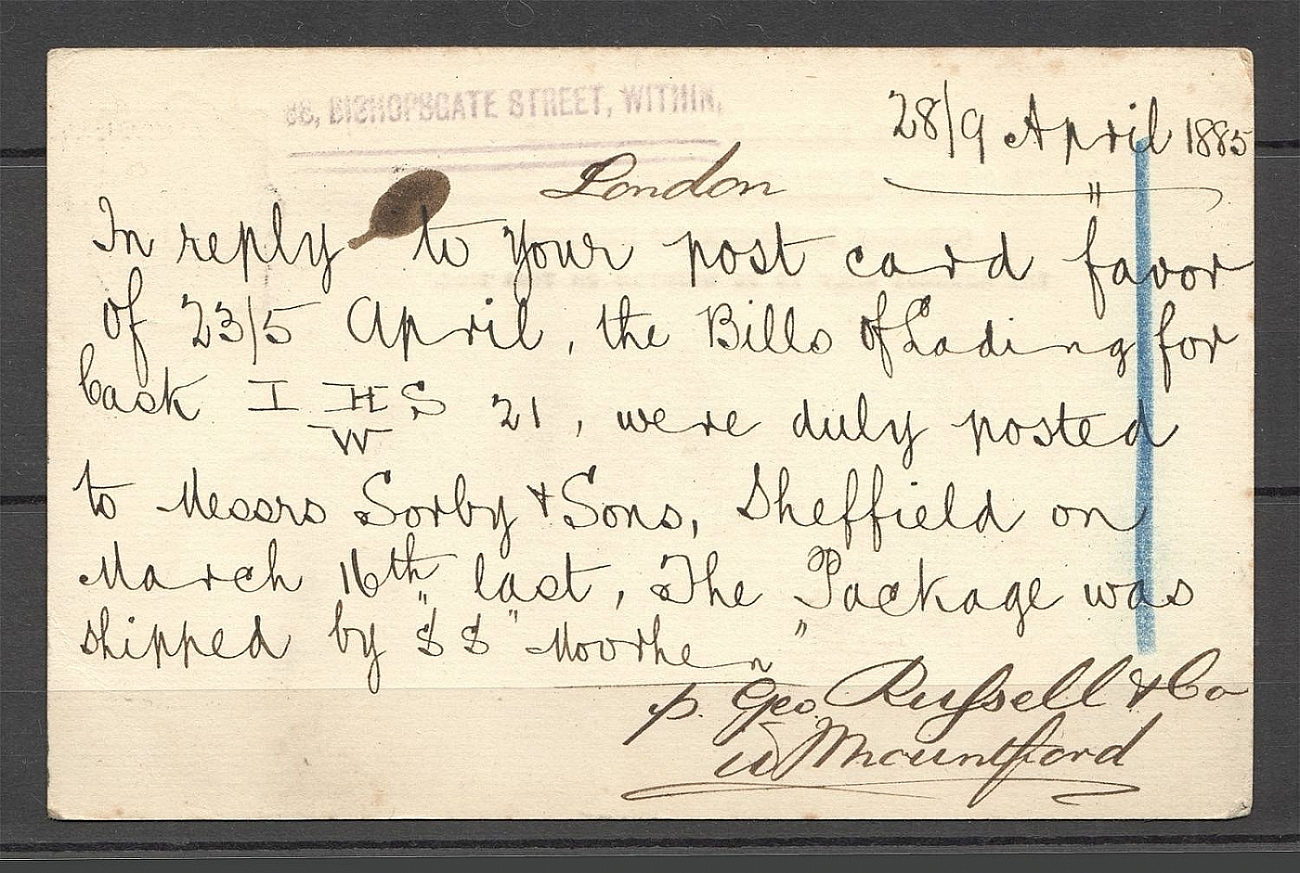 88, BISHOPSGATE STREET, WITHIN,
28/9 April 1885
London
In reply to your post card favor
of 23/5 April, the Bills of Lading for
Cask I HS 21, were duly posted
W
to Messrs Sorby & Sons, Sheffield on
March 16th last, The Package was
shipped by "SS" Moorhen"
p. Geo. Russell & Co
W Mountford